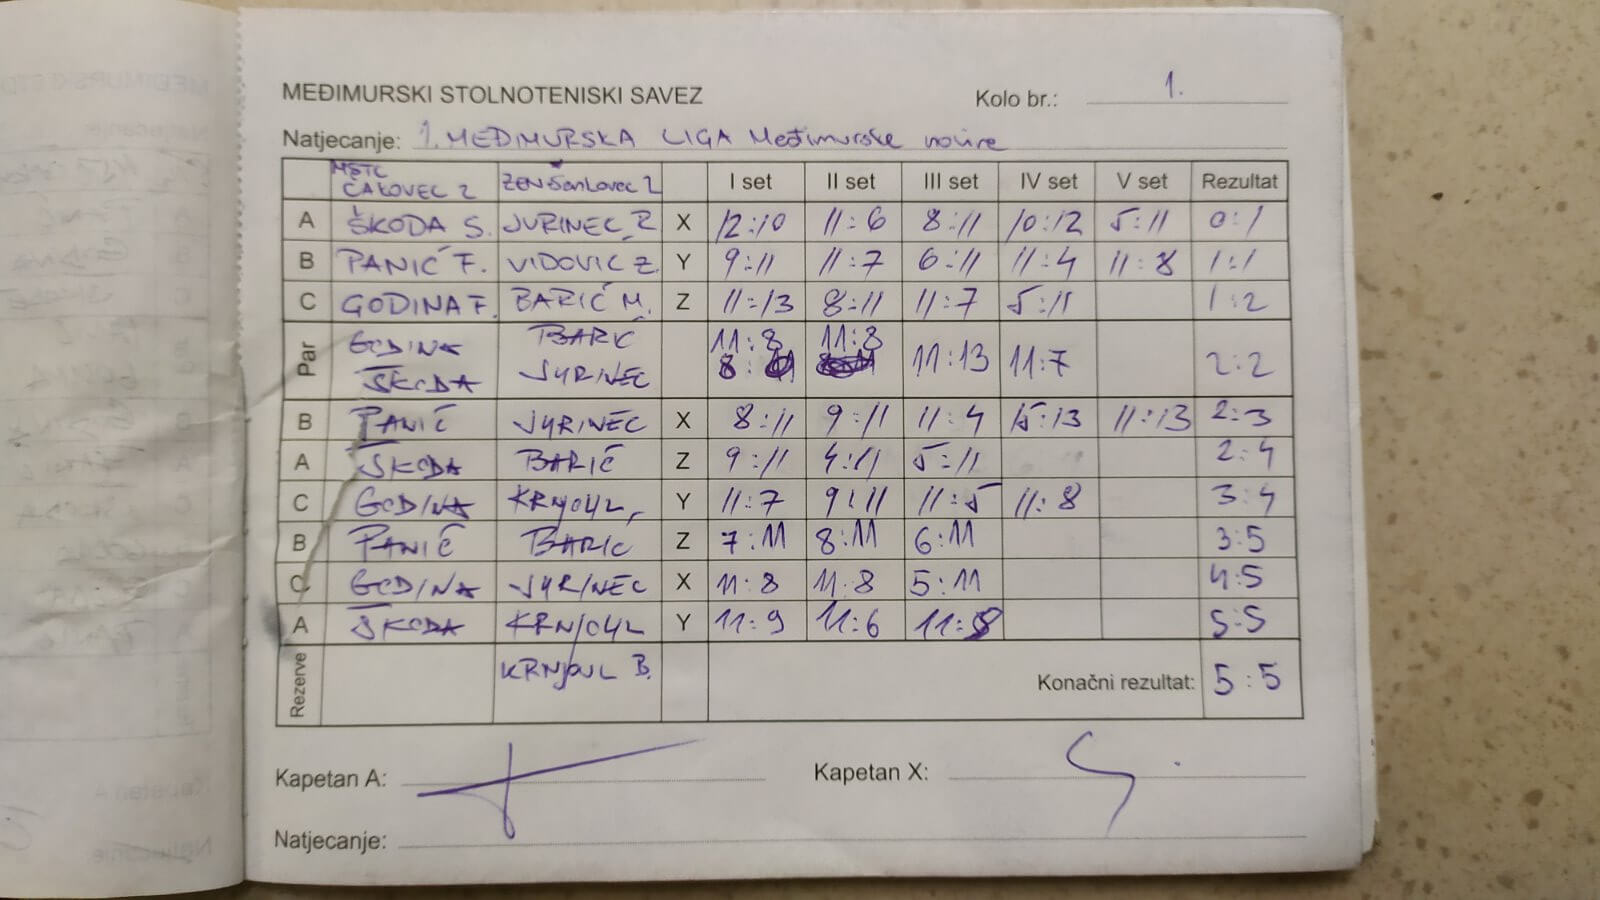 MEĐIMURSKI STOLNOTENISKI SAVEZ
Kolo br.: 1.
Natjecanje: 1. MEĐIMURSKA LIGA Međimurske novine
MSTC ČAKOVEC 2 ZEN Šenkovec 2 I set II set III set IV set V set Rezultat
A ŠKODA S. JURINEC R. X 12:10 11:6 8:11 10:12 5:11 0:1
B PANIĆ F. VIDOVIC Z. Y 9:11 11:7 6:11 11:4 11:8 1:1
C GODINA F. BARIĆ M. Z 11:13 8:11 11:7 5:11 1:2
Par GODINA BARIĆ 11:8 11:8 11:13 11:7 2:2
ŠKODA JURINEC
B PANIĆ JURINEC X 8:11 9:11 11:4 15:13 11:13 2:3
A ŠKODA BARIĆ Z 9:11 4:11 5:11 2:4
C GODINA KRNJOUL Y 11:7 9:11 11:5 11:8 3:4
B PANIĆ BARIC Z 7:11 8:11 6:11 3:5
C GODINA JURINEC X 11:8 11:8 5:11 4:5
A ŠKODA KRNJOUL Y 11:9 11:6 11:8 5:5
Rezerve KRNJOUL B. Konačni rezultat: 5:5
Kapetan A: Kapetan X:
Natjecanje: